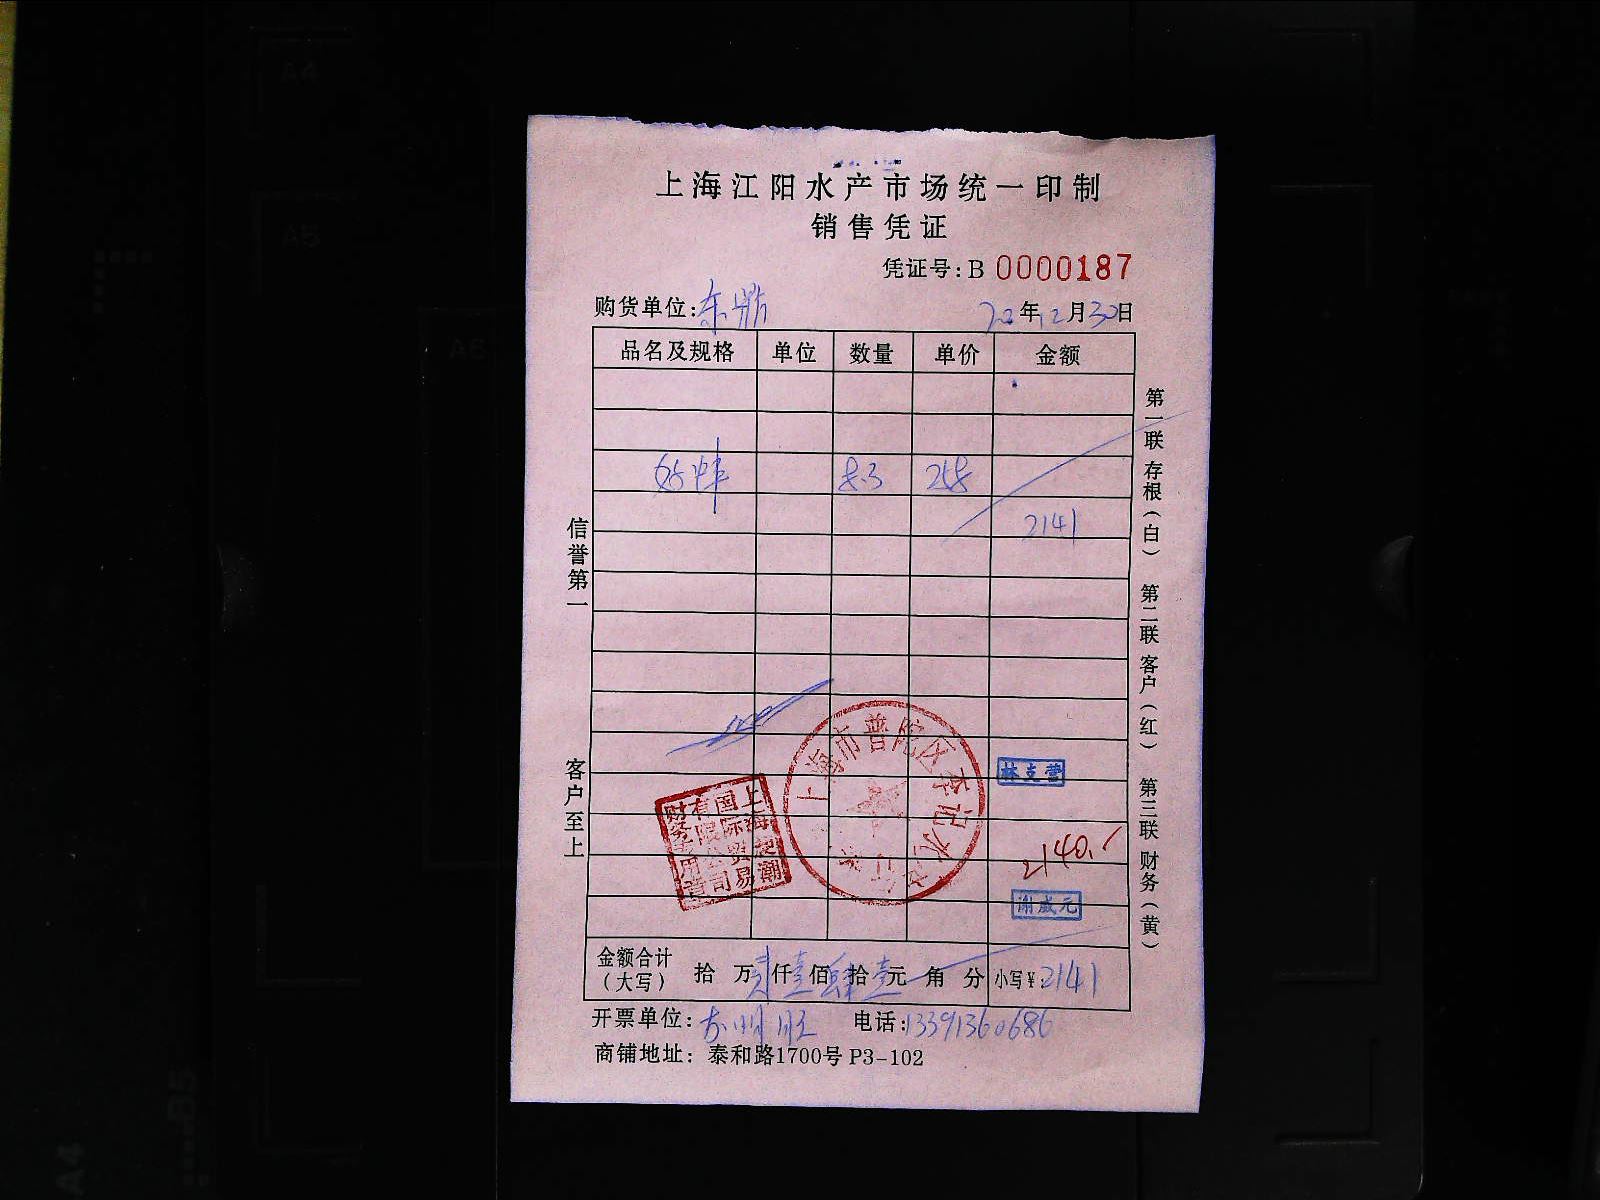 上海江阳水产市场统一印制
销售凭证
凭证号:B 0000187
购货单位:东鼎 20年12月30日
品名及规格 单位 数量 单价 金额
8.3 258
2141
信誉第一
客户至上
第一联 存根(白) 第二联 客户(红) 第三联 财务(黄)
林支营
上海
国际贸易
有限公司
财务专用章
上海市普陀区
2140.
谢成元
金额合计(大写) 拾 万 贰 仟 壹 佰 肆 拾 壹 元 角 分 小写¥:2141
开票单位: 电话:13391360686
商铺地址: 泰和路1700号 P3-102